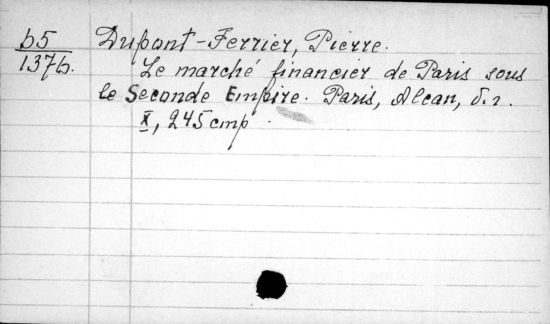 Б5
1376.
Dupont-Ferrier, Pierre.
Le marché financier de Paris sous
le Seconde Empire. Paris, Alcan, б.г.
X, 245 стр.